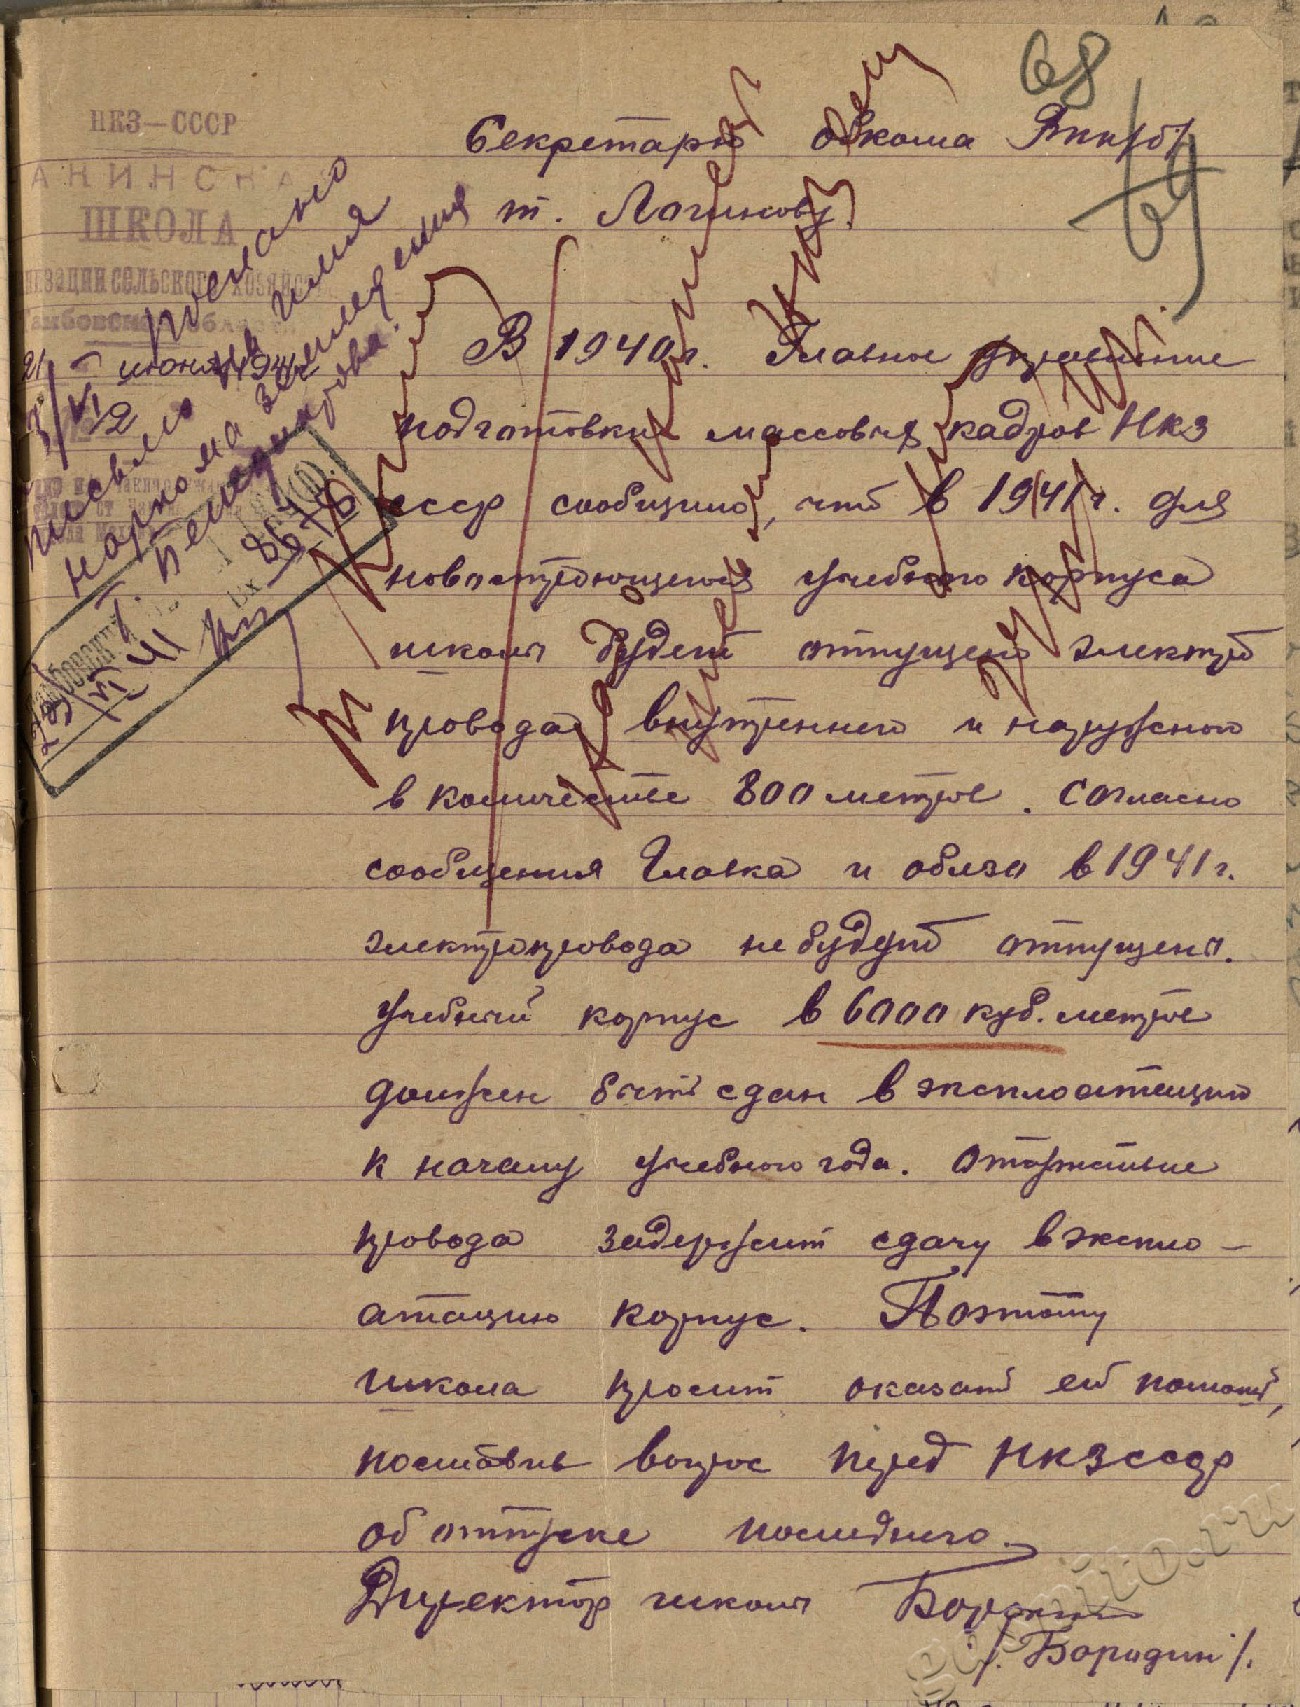 68
69
НКЗ—СССР
АНИНСКА
ШКОЛА
низации сельского хозяйс
Тамбовской области
21 июня 1941
№ 12
Послано
письмо на имя
наркома земледелия
т. Бенедиктова.
Секретарю обкома ВКП/б/
т. Логинову
В 1940 г. Главное управление
подготовки массовых кадров НКЗ
СССР сообщило, что в 1941 г. для
новостроющегося учебного корпуса
школы будет отпущено электро
провода внутреннего и наружного
в количестве 800 метров. Согласно
сообщения Главка и облзо в 1941 г.
электропровода не будут отпущены.
Учебный корпус в 6000 куб. метров
должен быть сдан в эксплоатацию
к началу учебного года. Отсутствие
провода задержит сдачу в экспло-
атацию корпус. Поэтому
школа просит оказать ей помощь,
поставив вопрос перед НКЗ СССР
об отпуске последнего.
Директор школы Бородин
/.Бородин/.